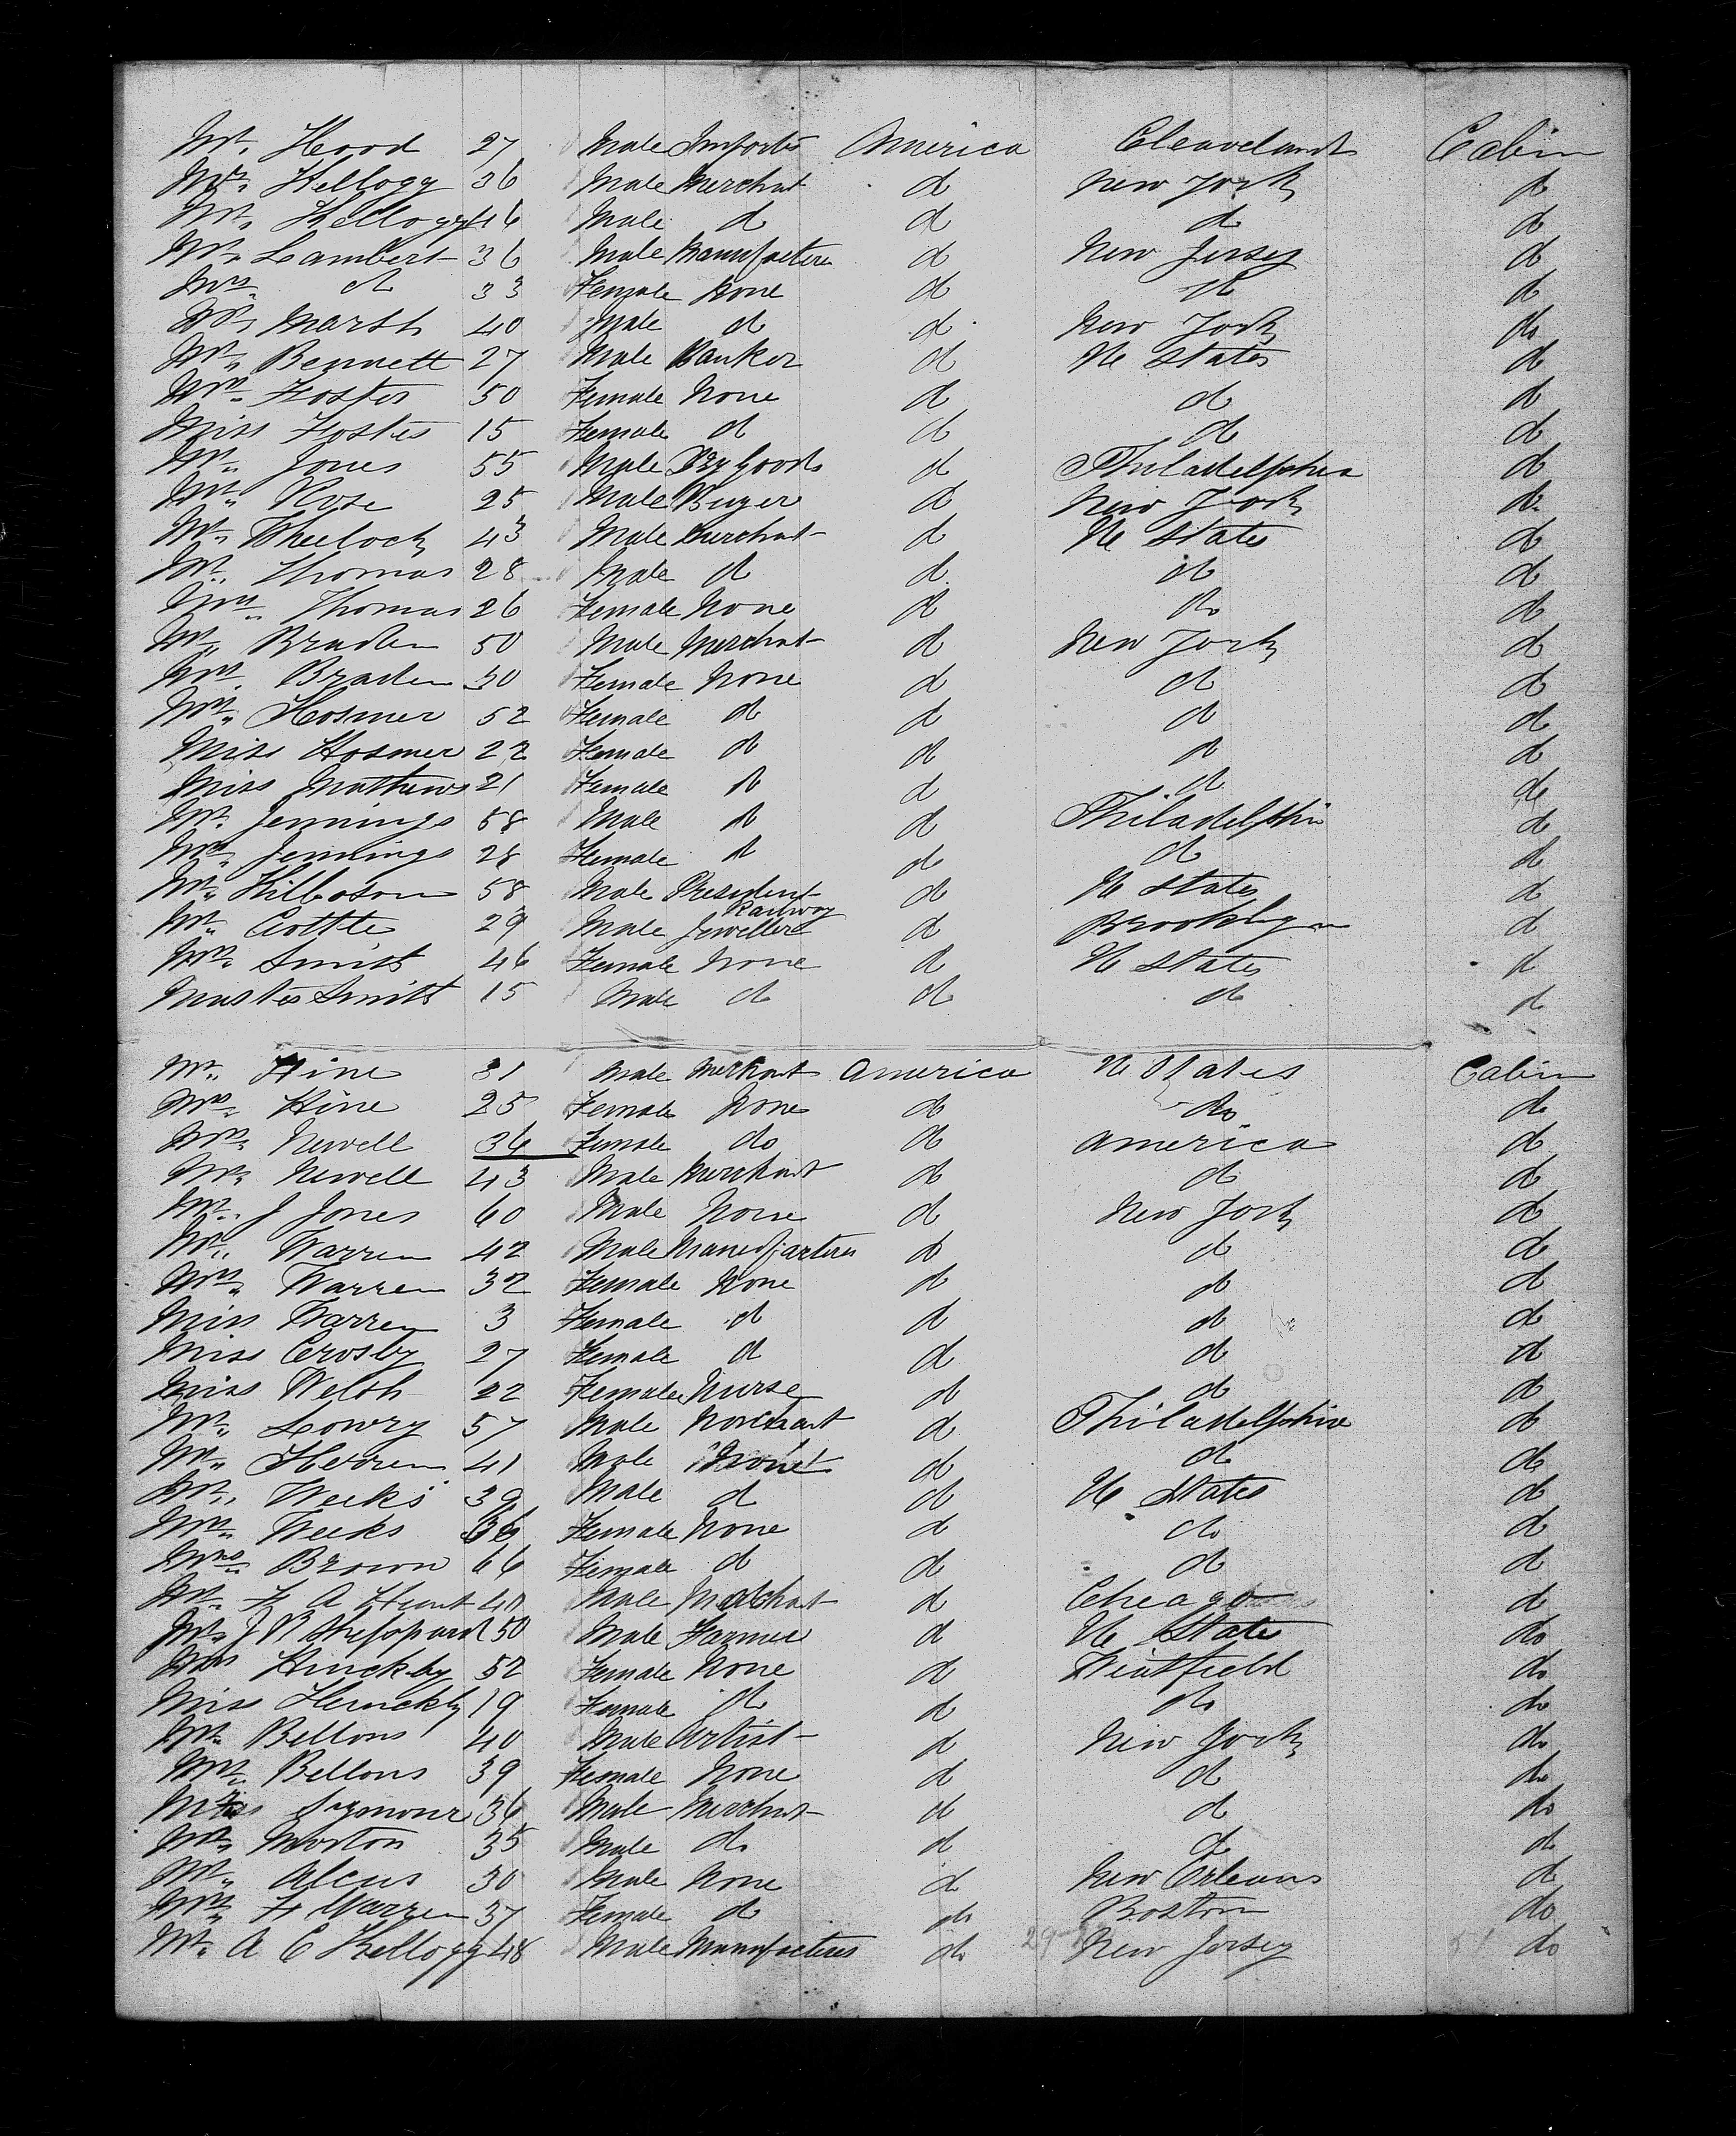 Mr. Hood 27 Male Importer America Cleaveland Cabin
Mr. Kellogg 36 Male Merchant d New York d
Mr. Kellogg 46 Male d d d d
Mr. Lambert 36 Male Manufacturer d New Jersey d
Mrs. d 33 Female None d d d
Mr. Marsh 40 Male d d New York do
Mr. Bennett 27 Male Banker d U States d
Mrs. Foster 50 Female None d d d
Miss Foster 15 Female d d d d
Mr. Jones 55 Male Dry Goods d Philadelphia d
Mr. Rose 25 Male Buyer d New York do
Mr. Wheelock 43 Male Merchant d U States d
Mr. Thomas 28 Male d d d d
Mrs. Thomas 26 Female None d do d
Mr. Braden 50 Male Merchant d New York d
Mrs. Braden 30 Female None d d d
Mrs. Hosmer 52 Female d d d d
Miss Hosmer 22 Female d d d d
Miss Mathews 21 Female d d d d
Mr. Jennings 58 Male d d Philadelphia d
Mrs. Jennings 28 Female d d d d
Mr. Male President d U States d
Railway
Mr. Cottle 29 Male Jeweller d Brooklyn d
Mrs. Smith 46 Female None d U States d
Master Smith 15 Male d d d d
Mr. Hine 31 Male Merchant America U States Cabin
Mrs. Hine 25 Female None d do d
Mrs. Newell 36 Female do d America d
Mr. Newell 43 Male Merchant d d d
Mr. J Jones 60 Male None d New York d
Mr. Warren 42 Male Manufacturer d d d
Mrs. Warren 32 Female None d d d
Miss Warren 3 Female d d d d
Miss Crosby 27 Female d d d d
Miss Welsh 22 Female Nurse d d d
Mr. Lowry 57 Male Merchant d Philadelphia d
Mr. Herren 41 Male None d d d
Mr. Weeks 39 Male d d U States d
Mrs. Weeks Female None d do d
Mrs. Brown 66 Female d d d d
Mr. F A Hunt Male Merchant d Cheago d
Mr. J Sheppard 50 Male Farmer d U States do
Mrs Hinckley 52 Female None d Westfield do
Miss Hinckley 19 Female d d do do
Mr. Bellows 40 Male Artist d New York do
Mrs. Bellows 39 Female None d d do
Seymour 36 Male Merchant d d do
Mr. Morton 35 Male do d d d
Mr. Alcus 30 Male None d New Orleans d
Mrs. F Warren 37 Female d do Boston do
Mr. A C Kellogg 48 Male Manufacturer do New Jersey do